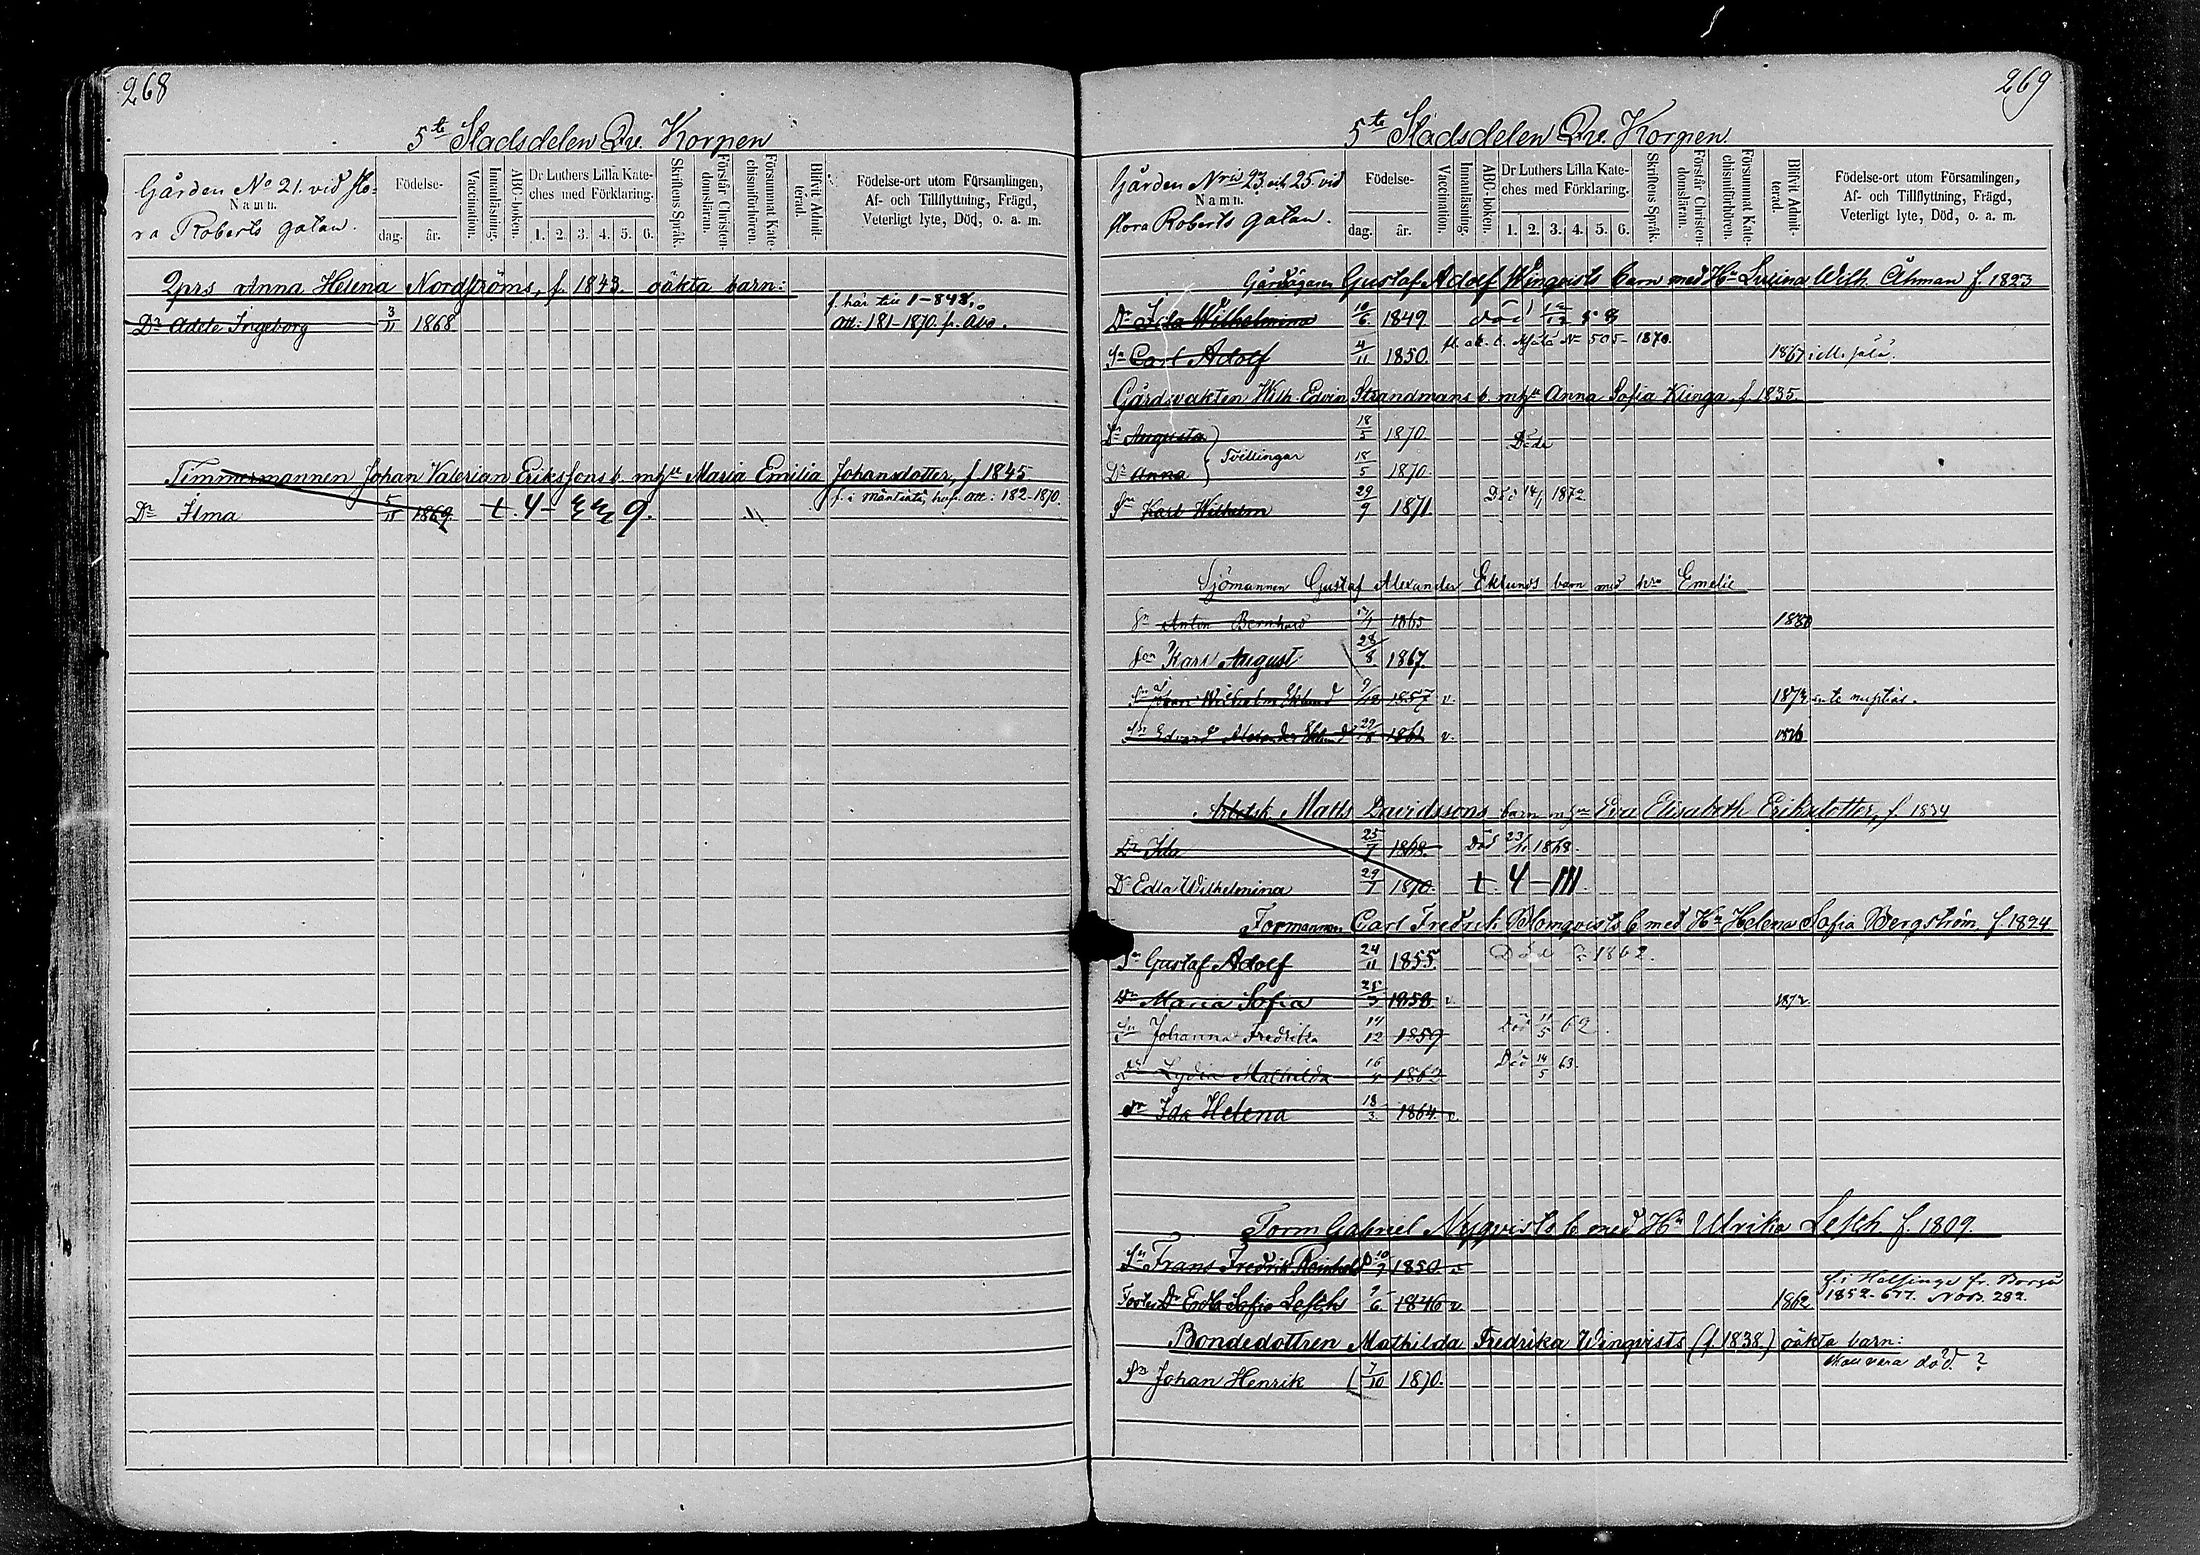 268
5te Stadsdelen Qv. Korpen
Gården No 21. vid Sto-
Namn.
ra Roberts gatan.
Födelse-
dag. år.
Vaccination.
Innanläsning.
ABC-boken.
Dr Luthers Lilla Kate-
ches med Förklaring.
1. 2. 3. 4. 5. 6.
Skriftens Språk.
Förstår Christen-
domsläran.
Försummat Kate-
chismiförhören.
Blifvit Admit-
terad.
Födelse-ort utom Församlingen,
Af- och Tillflyttning, Frägd,
Veterligt lyte, Död, o. a. m.
Qprs Anna Helena Nordströms, f. 1843. oäkta barn:
Dr Adele Ingeborg 3/11 1868
att: 181-1870 fr. Åbo.
Timmermannen Johan Valerian Erikssons b. m hu Maria Emilia Johansdotter, f 1845
f. i Mäntsälä, att: 182-1870.
Dr Ilma 5/11 1869. t. 4-
269
5te Stadsdelen Qv. Korpen.
Gården Nris 23 och 25 vid
Namn.
stora Roberts gatan.
Födelse-
dag. år.
Vaccination.
Innanläsning.
ABC-boken.
Dr Luthers Lilla Kate-
ches med Förklaring.
1. 2. 3. 4. 5. 6.
Skriftens Språk.
Förstår Christen-
domsläran.
Försummat Kate-
chismiförhören.
Blifvit Admit-
terad.
Födelse-ort utom Församlingen,
Af- och Tillflyttning, Frägd,
Veterligt lyte, Död, o. a. m.
Gårdsägaren Gustaf Adolf Winqvists barn med Hu Wilh. Åhman f. 1823
Dr Ida Wilhelmina 10/6 1849 död
Sn Carl Adolf 4/11 1850. No 505-1870. 1867
Gårdvakten Wilh. Edvin Strandmans b. m hu Anna Sofia Klinga f. 1835.
Dr Augusta 18/5 1870 Döde
Tvillingar
Dr Anna 18/5 1870.
Sn Karl Wilhelm 29/9 1871. Död 14/1 1872
Sjömannen Gustaf Alexander Eklunds barn med hu Emelie
Sn Anton Bernhard 1865 1880
Son Karl August 28/8 1867
Sn Johan Wilhelm Eklund 9/12 1857 v. 1873 ante nuptias.
Sn Edvard Alexander Eklund 29/8 1861 v. 1876
Arbetsk. Matts Davidssons barn m hu Eva Elisabeth Eriksdotter, f. 1834
Dr Ida 25/7 1868. Död 23/11 1868.
Dr Edla Wilhelmina 29/7 1870. t. 4-111.
Formannen Carl Fredrik Blomqvists b med Hu Helena Sofia Bergström f. 1824
Sn Gustaf Adolf 24/11 1855. Död 1862.
Dr Maria Sofia 25/3 1858 v. 1872.
Johanna Fredrika 19/12 1859 Död 11/5 62.
Dr Lydia Mathilda 1862 Död 14/5 63.
Dr Ida Helena 18/3 1864. v.
Form Gabriel Nyqvists b med Hu Ulrika Lesch f. 1809.
Sn Frans Fredrik Reinhold 10/7 1850. v
Foster Dr Edla Sofia Leschs 1846 v. 1862
f. i Helsinge fr. Borgå
1852.
Bondedottren Mathilda Fredrika Winqvists (f. 1838.) oäkta barn:
skall vara död?
Sn Johan Henrik 7/10 1870.